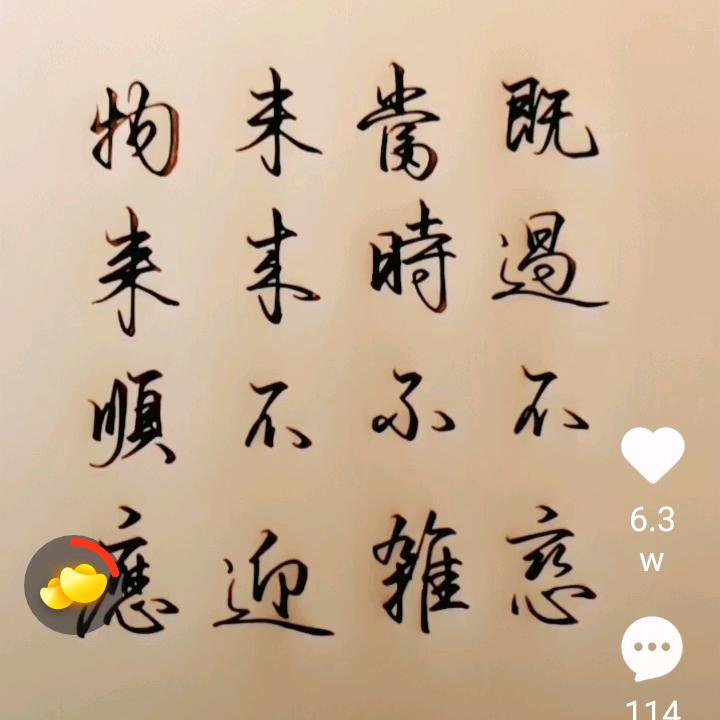 物来順應
未来不迎
當時不雜
既過不恋
6.3
w
114